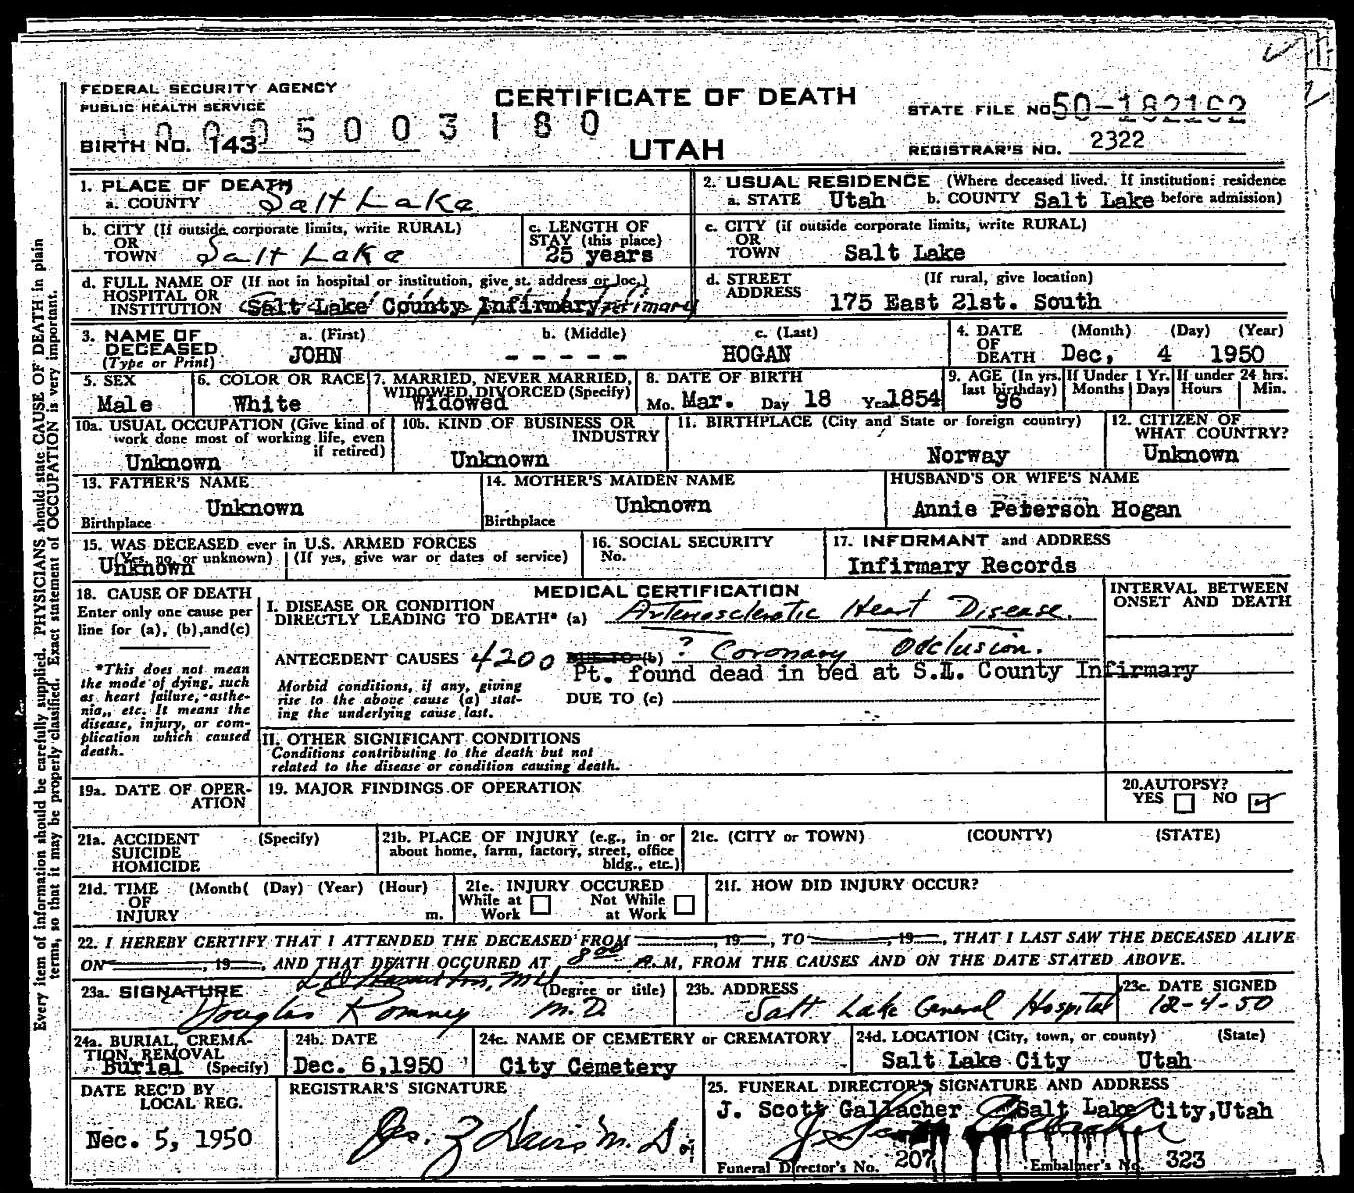 FEDERAL SECURITY AGENCY
PUBLIC HEALTH SERVICE
CERTIFICATE OF DEATH
STATE FILE NO. 50-182162
0005003180
BIRTH NO. 143
UTAH
REGISTRAR'S NO. 2322
1. PLACE OF DEATH
a. COUNTY Salt Lake
2. USUAL RESIDENCE (Where deceased lived. If institution: residence before admission)
a. STATE Utah b. COUNTY Salt Lake
b. CITY (If outside corporate limits, write RURAL)
OR
TOWN Salt Lake
c. LENGTH OF
STAY (this place)
25 years
c. CITY (if outside corporate limits, write RURAL)
OR
TOWN Salt Lake
d. FULL NAME OF (If not in hospital or institution, give st. address or loc.)
HOSPITAL OR
INSTITUTION Salt Lake County Infirmary
d. STREET (If rural, give location)
ADDRESS 175 East 21st. South
3. NAME OF
DECEASED
(Type or Print)
a. (First) b. (Middle) c. (Last)
JOHN - - - - - HOGAN
4. DATE (Month) (Day) (Year)
OF
DEATH Dec, 4 1950
5. SEX
Male
6. COLOR OR RACE
White
7. MARRIED, NEVER MARRIED,
WIDOWED, DIVORCED (Specify)
Widowed
8. DATE OF BIRTH
Mo. Mar. Day 18 Year 1854
9. AGE (In yrs. last birthday)
96
If Under 1 Yr.
Months Days
If under 24 hrs.
Hours Min.
10a. USUAL OCCUPATION (Give kind of
work done most of working life, even
if retired)
Unknown
10b. KIND OF BUSINESS OR
INDUSTRY
Unknown
11. BIRTHPLACE (City and State or foreign country)
Norway
12. CITIZEN OF
WHAT COUNTRY?
Unknown
13. FATHER'S NAME
Unknown
Birthplace
14. MOTHER'S MAIDEN NAME
Unknown
Birthplace
HUSBAND'S OR WIFE'S NAME
Annie Peterson Hogan
15. WAS DECEASED ever in U.S. ARMED FORCES
(Yes, no, or unknown) (If yes, give war or dates of service)
Unknown
16. SOCIAL SECURITY
No.
17. INFORMANT and ADDRESS
Infirmary Records
18. CAUSE OF DEATH
Enter only one cause per
line for (a), (b), and (c)
*This does not mean
the mode of dying, such
as heart failure, asthe-
nia, etc. It means the
disease, injury, or com-
plication which caused
death.
MEDICAL CERTIFICATION
I. DISEASE OR CONDITION
DIRECTLY LEADING TO DEATH* (a) Arteriosclerotic Heart Disease.
ANTECEDENT CAUSES 4200 DUE TO (b) ? Coronary Occlusion.
Pt. found dead in bed at S.L. County Infirmary
Morbid conditions, if any, giving
rise to the above cause (a) stat-
ing the underlying cause last.
DUE TO (c)
INTERVAL BETWEEN
ONSET AND DEATH
II. OTHER SIGNIFICANT CONDITIONS
Conditions contributing to the death but not
related to the disease or condition causing death.
19a. DATE OF OPER-
ATION
19. MAJOR FINDINGS OF OPERATION
20. AUTOPSY?
YES NO
21a. ACCIDENT (Specify)
SUICIDE
HOMICIDE
21b. PLACE OF INJURY (e.g., in or
about home, farm, factory, street, office
bldg., etc.)
21c. (CITY or TOWN) (COUNTY) (STATE)
21d. TIME (Month( (Day) (Year) (Hour)
OF
INJURY m.
21e. INJURY OCCURED
While at Work Not While at Work
21f. HOW DID INJURY OCCUR?
22. I HEREBY CERTIFY THAT I ATTENDED THE DECEASED FROM , 19 , TO , 19 , THAT I LAST SAW THE DECEASED ALIVE
ON , 19 , AND THAT DEATH OCCURED AT 8:00 M, FROM THE CAUSES AND ON THE DATE STATED ABOVE.
23a. SIGNATURE (Degree or title)
Douglas Romney M.D.
23b. ADDRESS
Salt Lake General Hospital
23c. DATE SIGNED
12-4-50
24a. BURIAL, CREMA-
TION, REMOVAL
(Specify)
Burial
24b. DATE
Dec. 6,1950
24c. NAME OF CEMETERY or CREMATORY
City Cemetery
24d. LOCATION (City, town, or county) (State)
Salt Lake City Utah
DATE REC'D BY
LOCAL REG.
Nec. 5, 1950
REGISTRAR'S SIGNATURE
25. FUNERAL DIRECTOR'S SIGNATURE AND ADDRESS
J. Scott Gallacher Salt Lake City,Utah
Funeral Director's No. 207 Embalmer's No. 323
Every item of information should be carefully supplied. PHYSICIANS should state CAUSE OF DEATH in plain
terms, so that it may be properly classified. Exact statement of OCCUPATION is very important.